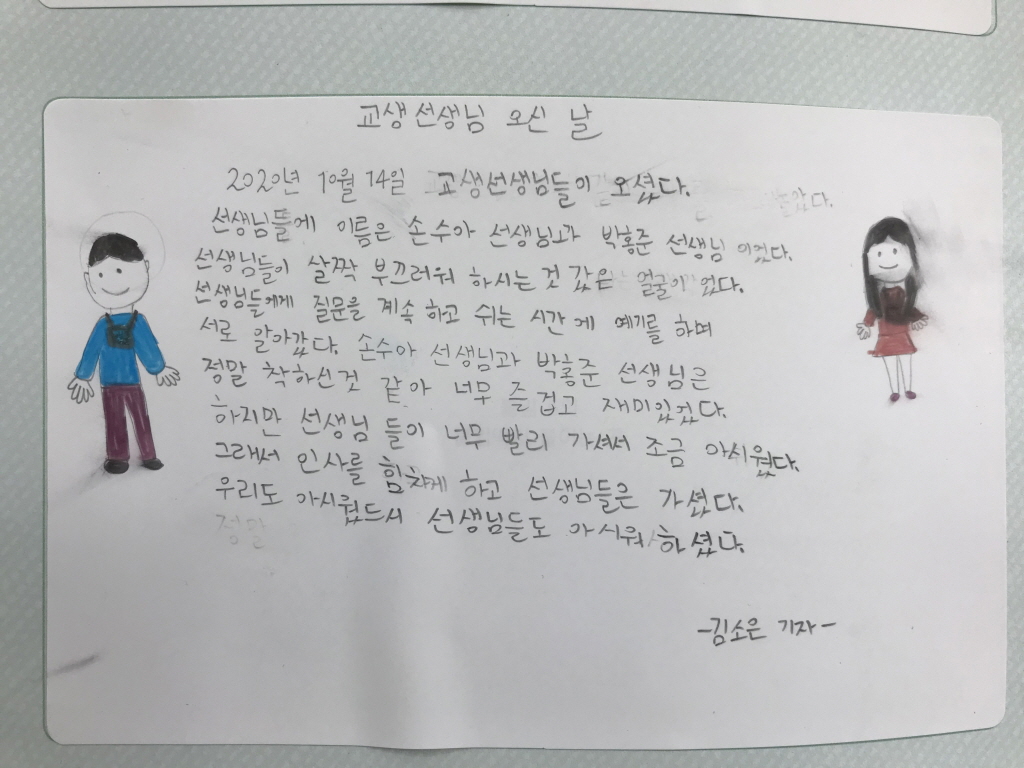 교생선생님 오신 날
2020년 10월 14일 교생선생님들이 오셨다.
선생님들에 이름은 손수아 선생님과 박홍준 선생님 이었다.
선생님들이 살짝 부끄러워 하시는 것 같은 얼굴이 었다.
선생님들에게 질문을 계속 하고 쉬는 시간에 예기를 하며
서로 알아갔다. 손수아 선생님과 박홍준 선생님은
정말 착하신것 같아 너무 즐겁고 재미있었다.
하지만 선생님 들이 너무 빨리 가셔서 조금 아시웠다.
그래서 인사를 힘차게 하고 선생님들은 가셨다.
우리도 아시웠드시 선생님들도 아시워 하셨다.
정말
-김소은 기자-